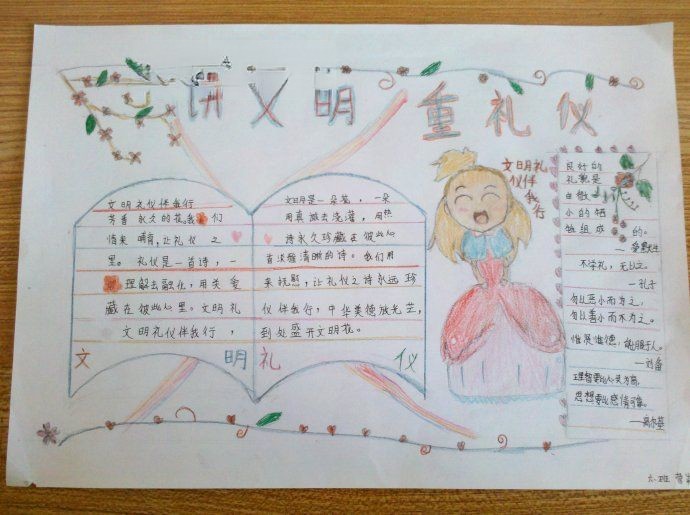 讲文明 重礼仪
文明礼仪伴我行
芳香永久的花。我们
情来哺育,让礼仪之
里。礼仪是一首诗,一
理解去融化,用关爱
藏在彼此心里。文明礼
文明礼仪伴我行,
文明是一朵花,一朵
用真诚去浇灌,用热
诗永久珍藏在彼此心
首淡雅清晰的诗。我们用
来抚慰,让礼仪之诗永远珍
仪伴我行,中华美德放光芒,
到处盛开文明花。
文明礼仪
文明礼
仪伴
我
行
良好的
礼貌是
由微
小的牺
牲组成的。
—爱默生
不学礼,无以立。
—孔子
勿以恶小而为之,
勿以善小而不为之。
惟贤惟德,能服于人。
—刘备
理智要比心灵为高,
思想要比感情可靠。
—高尔基
六.班